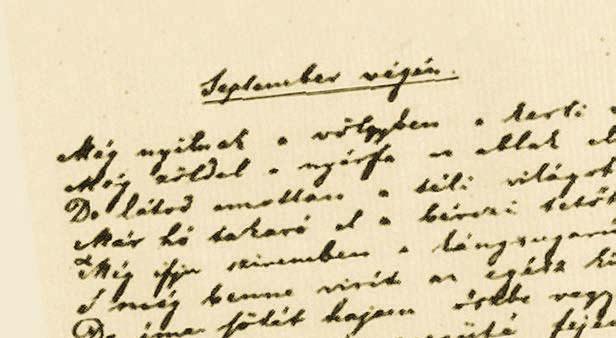 September végén.
Még nyilnak a völgyben a kerti
Még zöldel a nyárfa az ablak el
De látod amottan a téli világot
Már hó takará el a bérczi tetőt
Még ifju szivemben a lángsugarú
S még benne virít az egész ki
De íme sötét hajam őszbe vegy
fejem